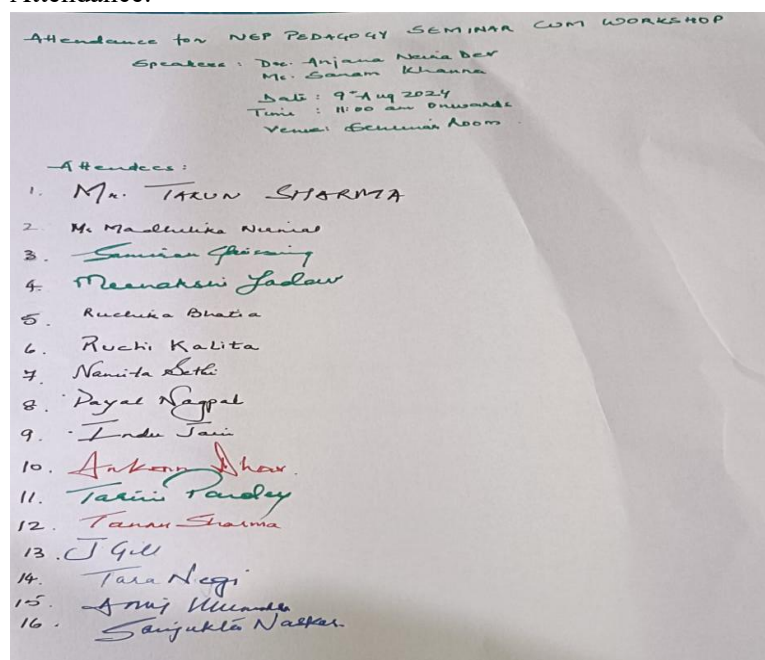 Attendance:
Attendance for NEP PEDAGOGY SEMINAR CUM WORKSHOP
Speakers : Doc. Anjana Neira Dev
Ms. Sanam Khanna
Date : 9th Aug 2024
Time : 11:00 am Onwards
Venue: Seminar Room
Attendees :
1. Mr. TARUN SHARMA
2. Ms Madhulika Nirmal
3.
4. Meenakshi Yadav
5. Ruchika Bhatia
6. Ruchi Kalita
7. Namita Sethi
8. Payal Nagpal
9. Indu Jain
10. Ankan Dhar.
11. Tarini Pandey
12. Tanu Sharma
13. J Gill
14. Tara Negi
15.
16. Sanjukta Naskar.